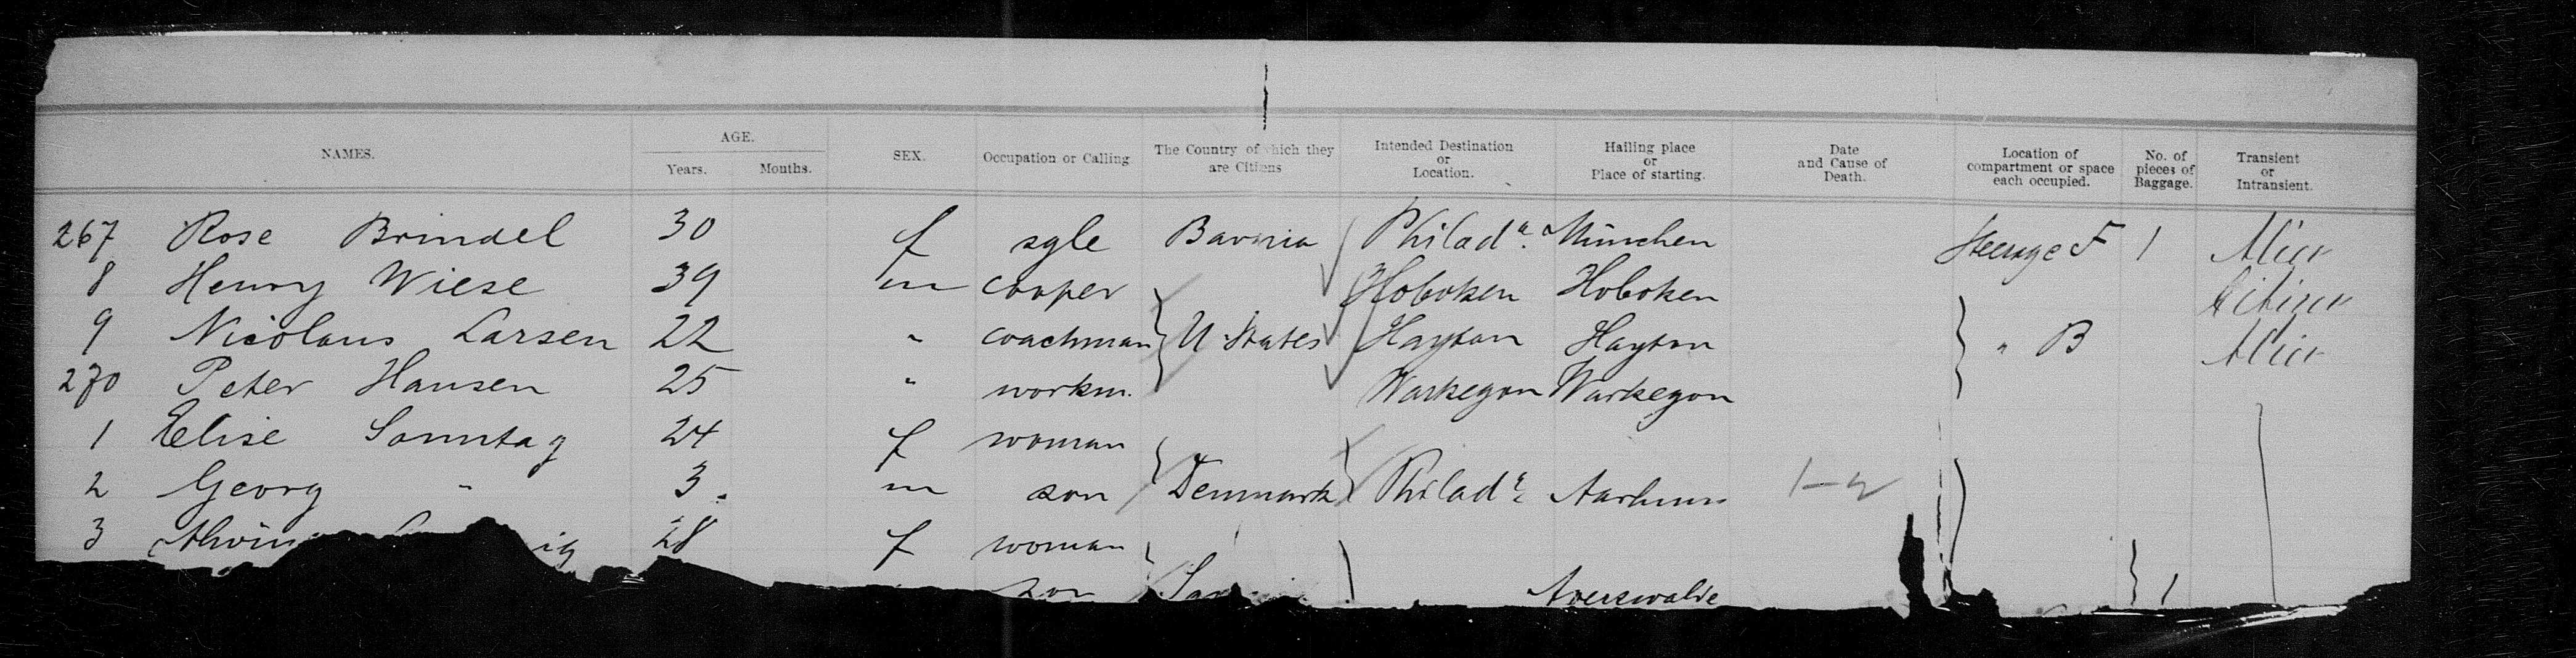 NAMES. AGE. Years. Months. SEX. Occupation or Calling The Country of which they are Citizens Intended Destination or Location. Hailing place or Place of starting. Date and Cause of Death. Location of compartment or space each occupied. No. of pieces of Baggage. Transient or Intransient.
267 Rose Brindel 30 f sgle Bavaria Philada. München Steerage F 1 Alien
8 Henry Wiese 39 m cooper Hoboken Hoboken Citizen
9 Nicolaus Larsen 22 " coachman U. States Hayton Hayton " B Alien
270 Peter Hansen 25 " workm. Warkegon Warkegon
1 Elise Sonntag 24 f woman
2 Georg " 3. m son Denmark Philada Aarhuus
3 28 f woman
son Averswalde 1